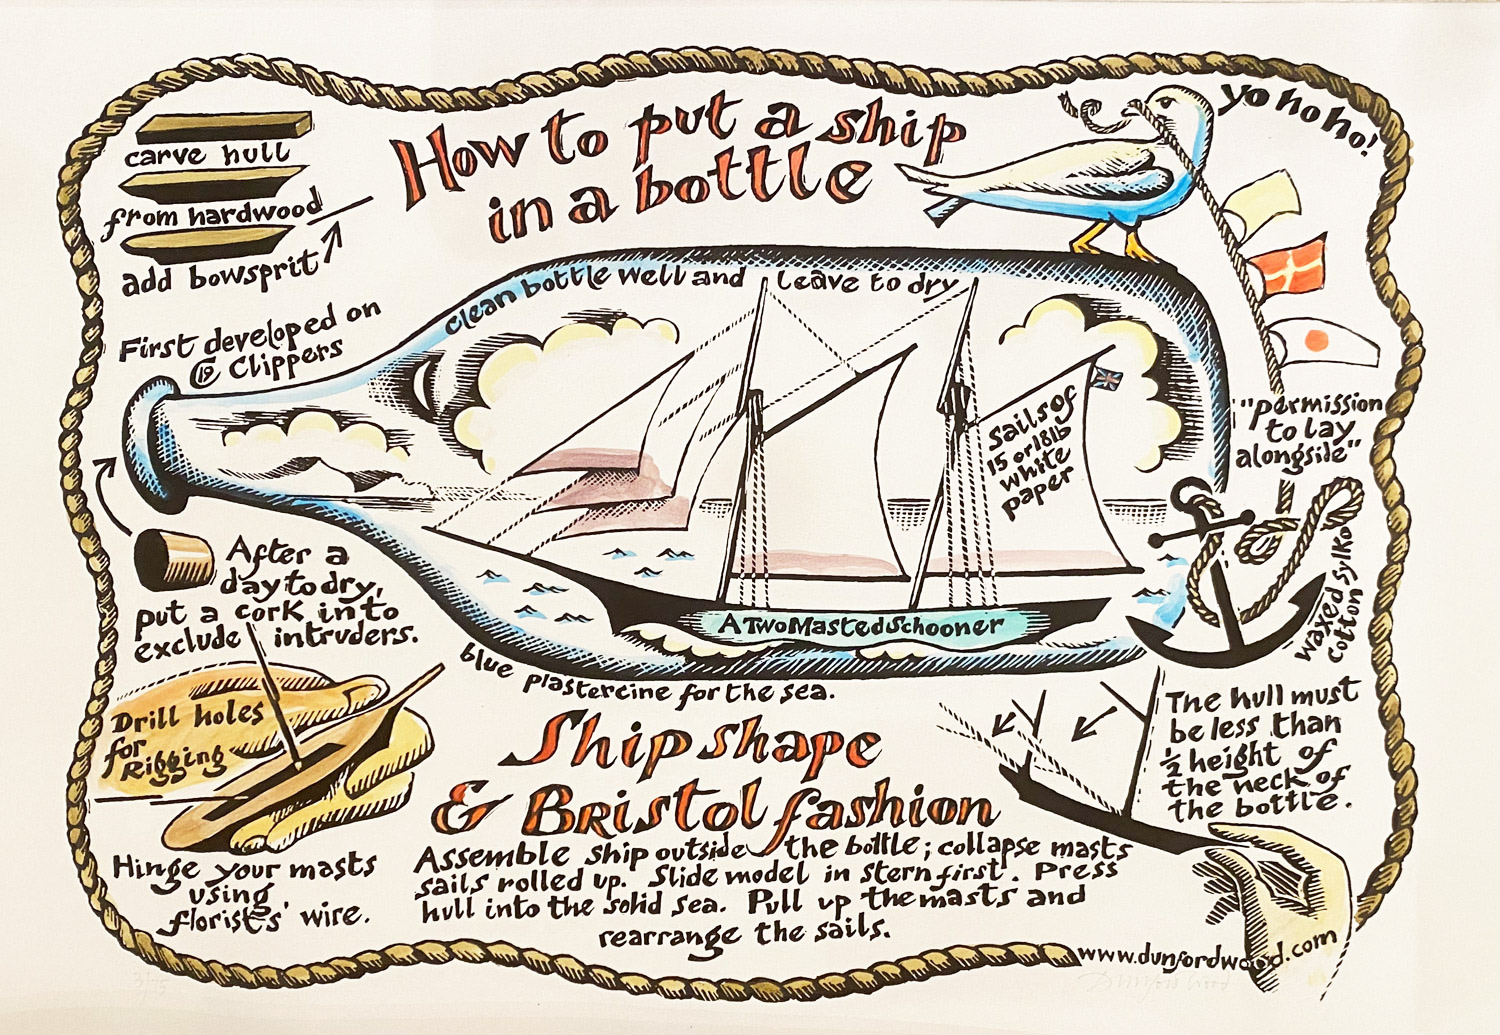 How to put a ship
in a bottle
yo ho ho!
carve hull
from hardwood
add bowsprit
First developed on
19 C Clippers
clean bottle well and leave to dry
sails of
15 or 18lb
white
paper
"permission
to lay
alongside"
waxed
cotton sylko
After a
day to dry,
put a cork into
exclude intruders.
A Two Masted Schooner
blue plastercine for the sea.
Drill holes
for
Rigging
Hinge your masts
using
florists' wire.
Ship shape
& Bristol fashion
Assemble ship outside the bottle; collapse masts
sails rolled up. Slide model in stern first. Press
hull into the solid sea. Pull up the masts and
rearrange the sails.
The hull must
be less than
½ height of
the neck of
the bottle.
www.dunfordwood.com
Dunford Wood